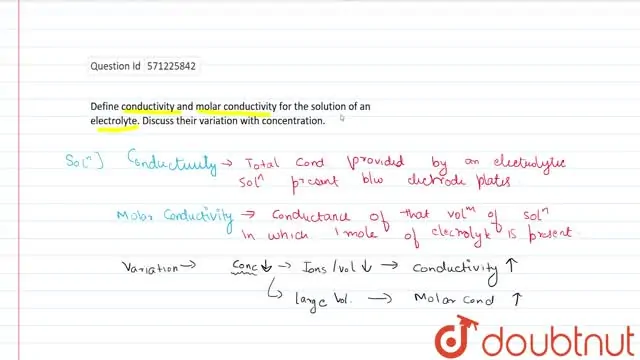 Question Id 571225842
Define conductivity and molar conductivity for the solution of an
electrolyte. Discuss their variation with concentration.
Solⁿ] Conductivity → Total Cond provided by an electrolytic
solⁿ present b/w electrode plates
Molar Conductivity → Conductance of that volᵐ of solⁿ
in which 1 mole of electrolyte is present.
Variation → Conc ↓ → Ions/vol ↓ → Conductivity ↑
↳ large Vol. → Molar Cond ↑
doubtnut